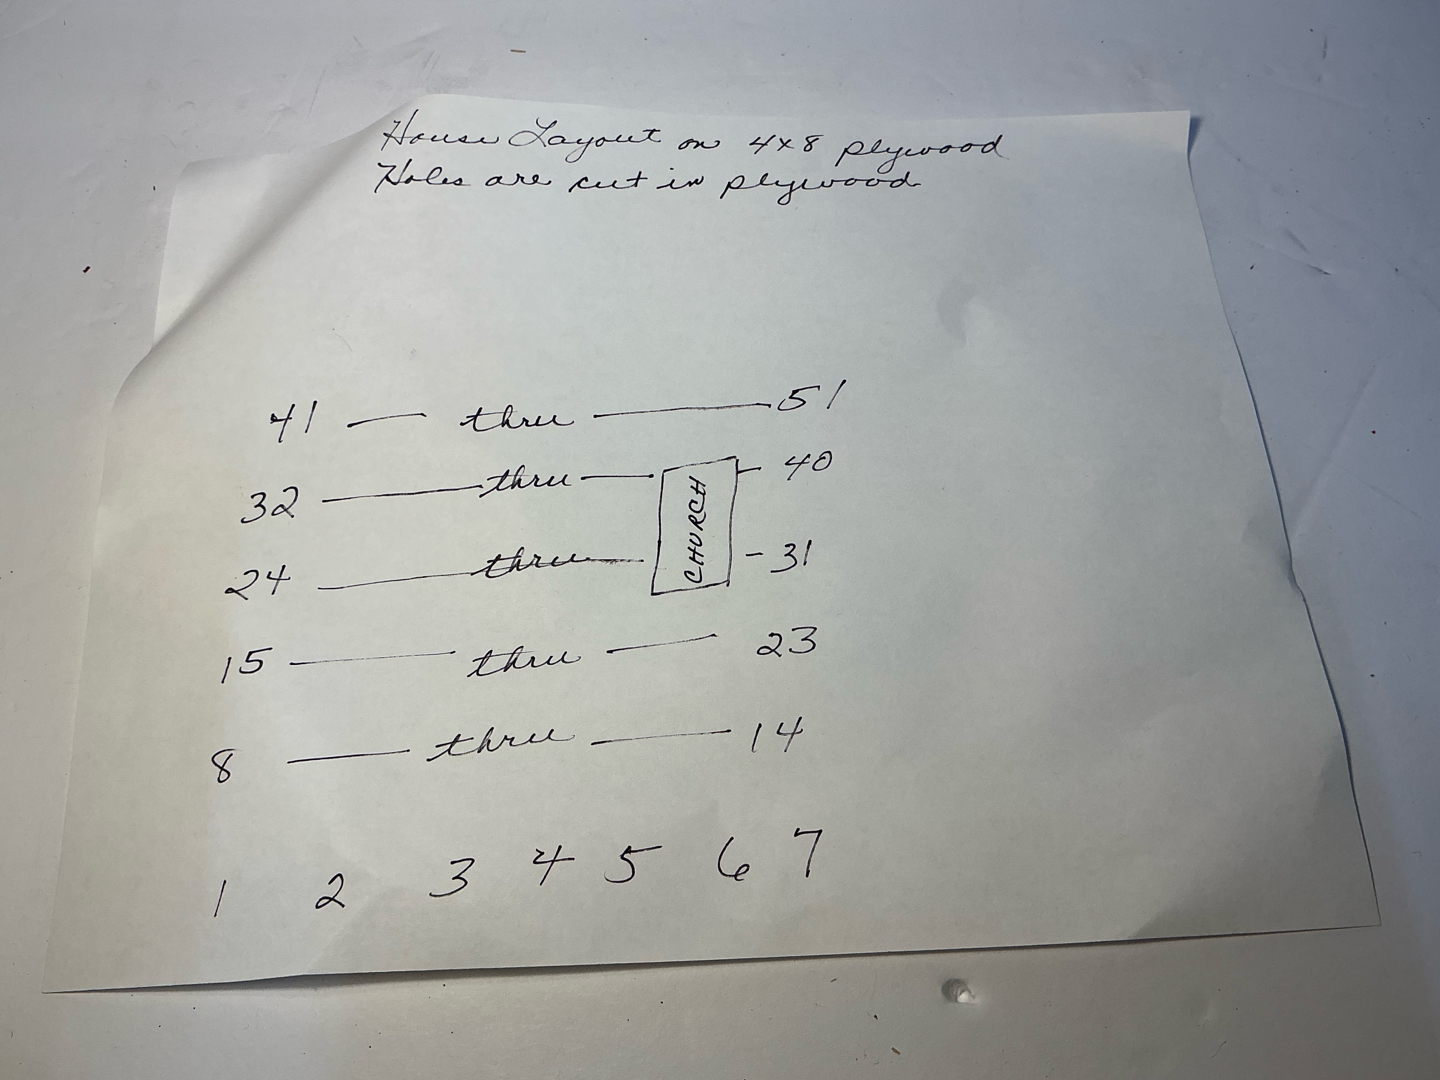 House Layout on 4x8 plywood
Holes are cut in plywood
41 — thru — 51
32 — thru — 40
CHURCH
24 — thru — 31
15 — thru — 23
8 — thru — 14
1 2 3 4 5 6 7